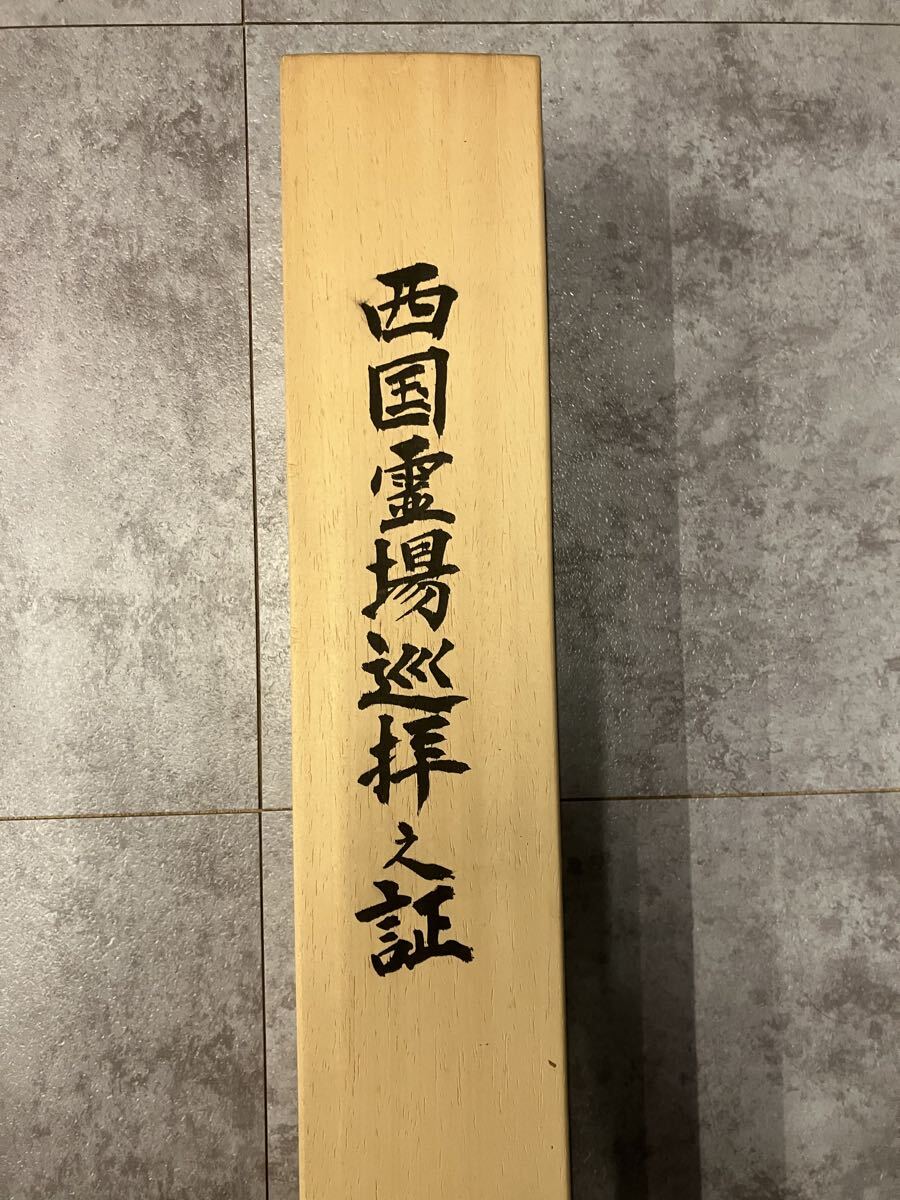 西国霊場巡拝之証